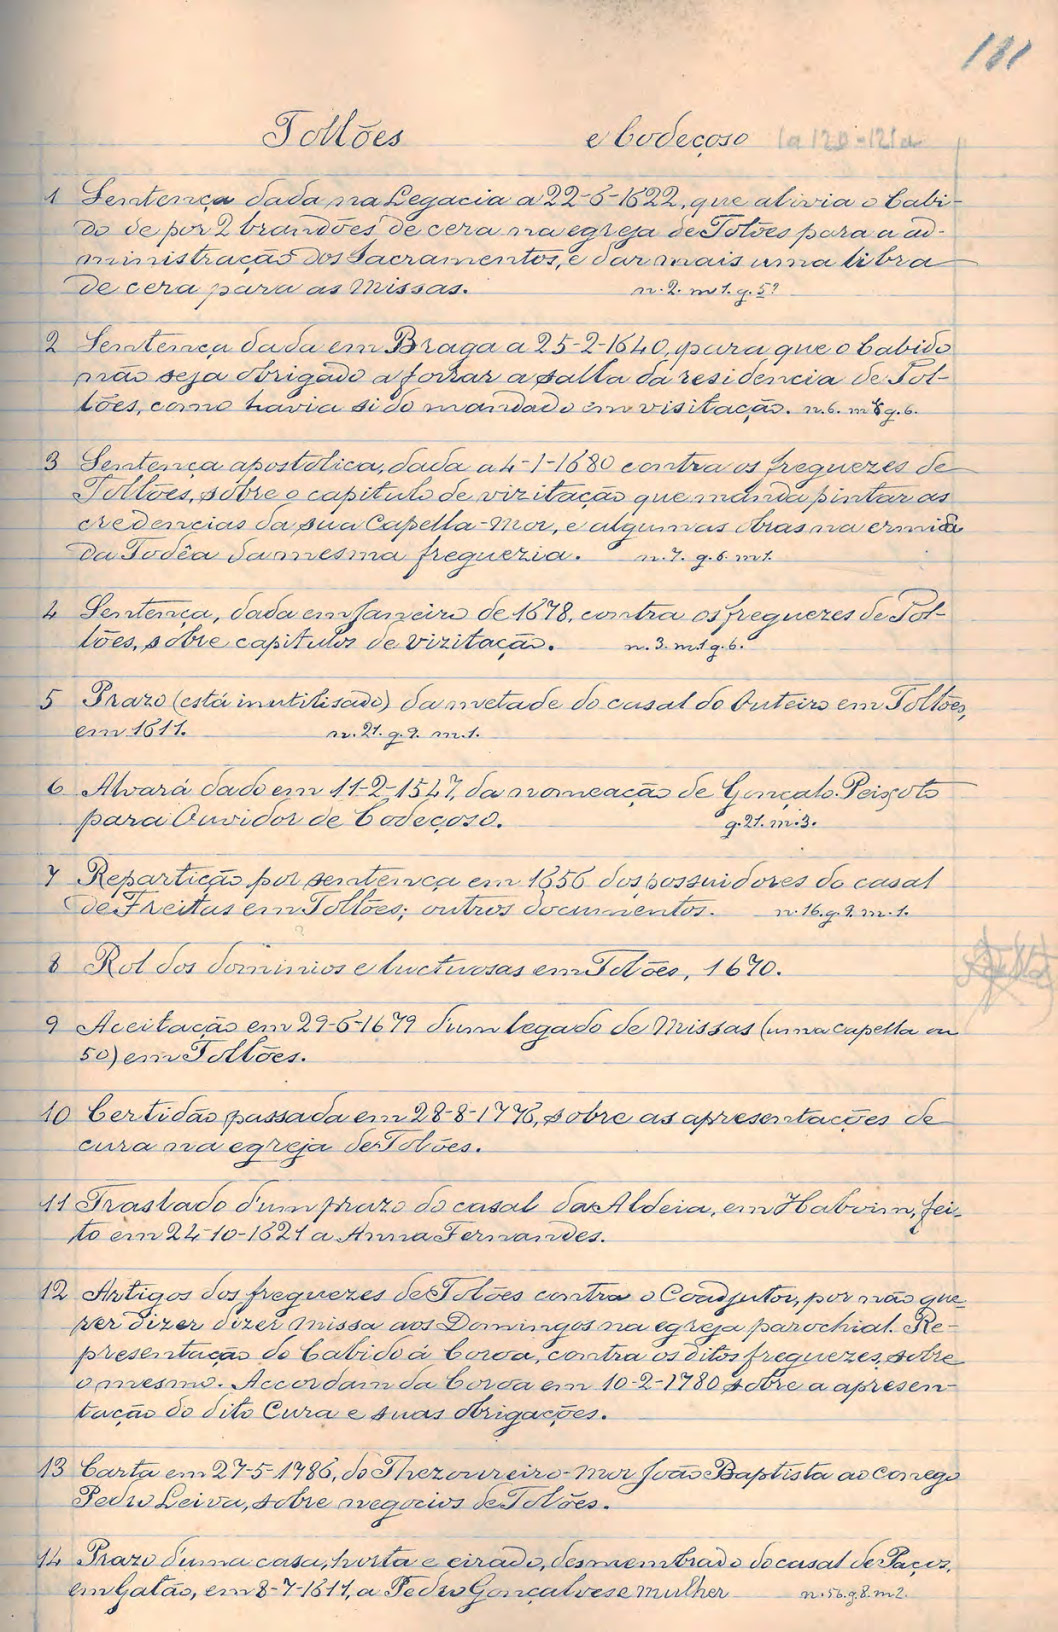 181
Tollões e Codeçoso
1 Sentença dada na Legacia a 22-6-1622, que alivia o Cabi-
do de por 2 brandões de cera na egreja de Tolões para a ad-
ministração dos Sacramentos, e dar mais uma libra
de cera para as Missas. n. 2. m 1. g. 5?
2 Sentença dada em Braga a 25-2-1640, para que o Cabido
não seja obrigado a forrar a salla da residencia de Tol-
lões, como havia sido mandado em visitação. n. 6. m g. 6.
3 Sentença apostolica, dada a 4-1-1680 contra os freguezes de
Tollões, sobre o capitulo de vizitação que manda pintar as
credencias da sua Capella-Mor, e algumas obras na ermida
da Todêa da mesma freguezia. n. 7. g. 6. m 1.
4 Sentença, dada em Janeiro de 1678, contra os freguezes de Tol-
lões, sobre capitulos de vizitação. n. 3. m 1 g. 6.
5 Prazo (está inutilisado) da metade do casal do Outeiro em Tollões,
em 1611. n. 21. g. 9. m. 1.
6 Alvará dado em 11-2-1547, da nomeação de Gonçalo Peixoto
para Ouvidor de Codeçoso. g. 21. m. 3.
7 Repartição por sentença em 1656 dos possuidores do casal
de Freitas em Tollões; outros documentos. n. 16. g. 9. m. 1.
8 Rol dos dominios e luctuosas em Tolões, 1670.
9 Aceitação em 29-6-1679 d'um legado de Missas (uma capella ou
50) em Tollões.
10 Certidão passada em 28-8-1776, sobre as apresentações de
cura na egreja de Tolões.
11 Traslado d'um prazo do casal da Aldeia, em Haboim, fei-
to em 24-10-1621 a Anna Fernandes.
12 Artigos dos freguezes de Tolões contra o Coadjutor, por não que-
rer dizer dizer missa aos Domingos na egreja parochial. Re-
presentação do Cabido á Coroa, contra os ditos freguezes, sobre
o mesmo. Accordam da Coroa em 10-2-1780 sobre a apresen-
tação do dito Cura e suas obrigações.
13 Carta em 27-5-1786, do Thezoureiro-Mor João Baptista ao Conego
Pedro Leiva, sobre negocios de Tolões.
14 Prazo d'uma casa, horta e eirado, desmembrado do casal de Paços,
em Gatão, em 8-7-1611, a Pedro Gonçalves e mulher n. 56. g. 8. m 2.